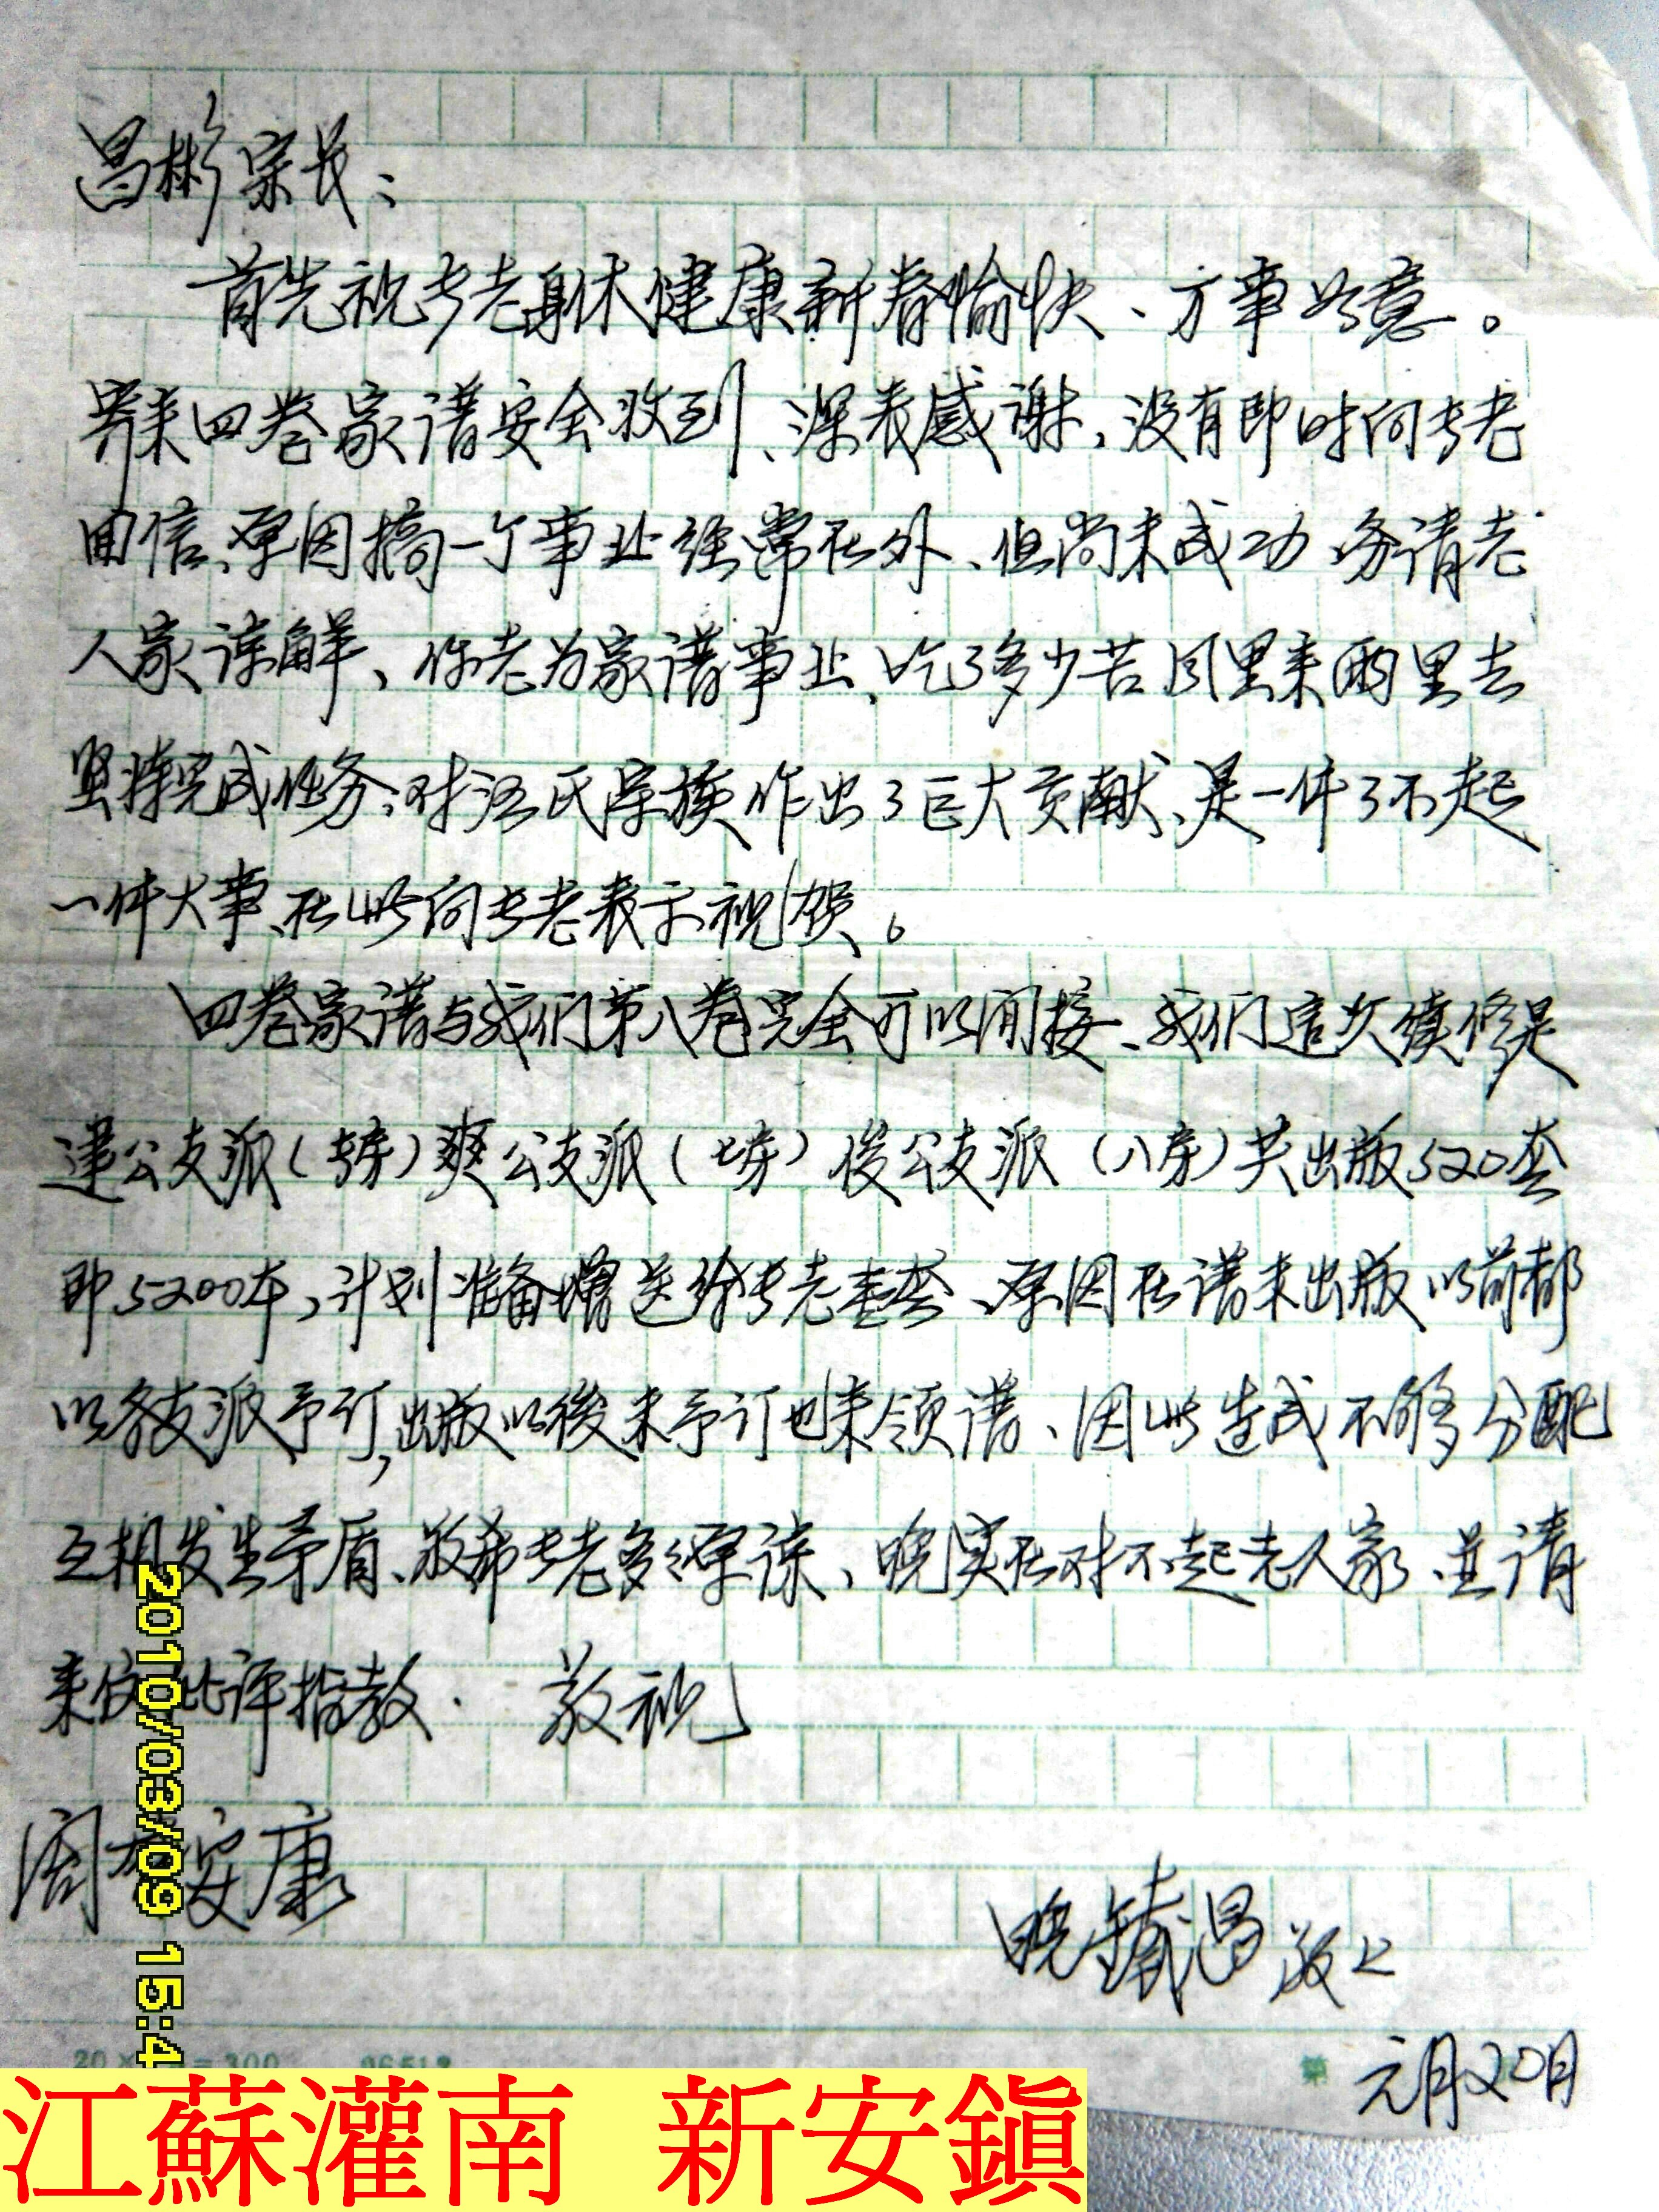 昌彬宗长：
首先祝长老身体健康新春愉快、万事如意。
寄来四卷家谱安全收到、深表感谢，没有即时向长老
回信、原因搞一个事业经常在外、但尚未成功、务请老
人家谅解、你老为家谱事业、吃了多少苦风里来雨里去
坚持完成任务，对汪氏宗族作出了巨大贡献、是一件了不起
一件大事、在此向长老表示祝贺。
四卷家谱与我们第八卷完全可以间接、我们这次续修是
建公支派（房）爽公支派（七房）俊公支派（八房）共出版520套
即5200本，计划准备赠送给长老壹套、原因在谱未出版以前都
以各支派予订，出版以後未予订也来领谱、因此造成不够分配
互相发生矛盾、敬希长老多多原谅、晚实在对不起老人家、並请
来信批评指教. 敬祝
阖家安康
晚 昌 敬上
元月20日
2010/03/09 15:4
20 × = 300 96512
第
江蘇灌南 新安鎮